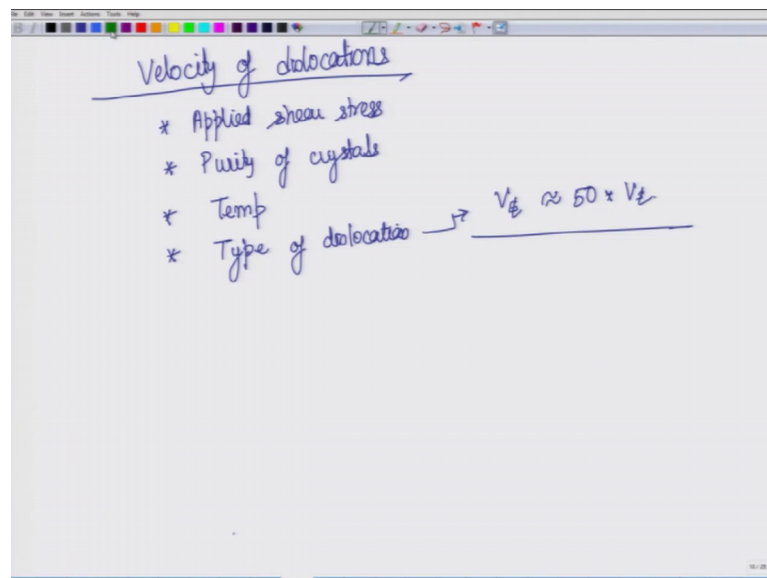 File Edit View Insert Actions Tools Help
Velocity of dislocations
* Applied shear stress
* Purity of crystals
* Temp
* Type of dislocation → V ≈ 50 * V